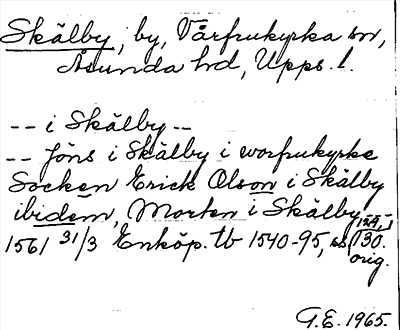 Skälby, by, Vårfrukyrka sn,
Åsunda hd, Upps. l.
-- i Skälby --
-- Jöns i Skälby i worfrukyrke
Socken Erick Olson i Skälby
ibidem, Morten i Skälby
1561 31/3 Enköp. tb 1540-95, s. 129, 130.
orig.
G.E. 1965.